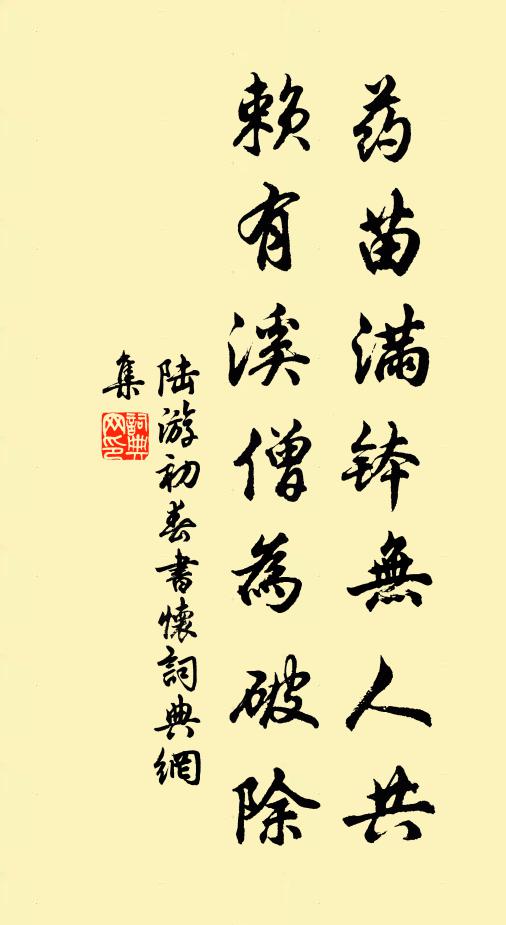 药苗满钵無人共
赖有溪僧為破除
陆游初春書懷詞典網
集
詞典网印